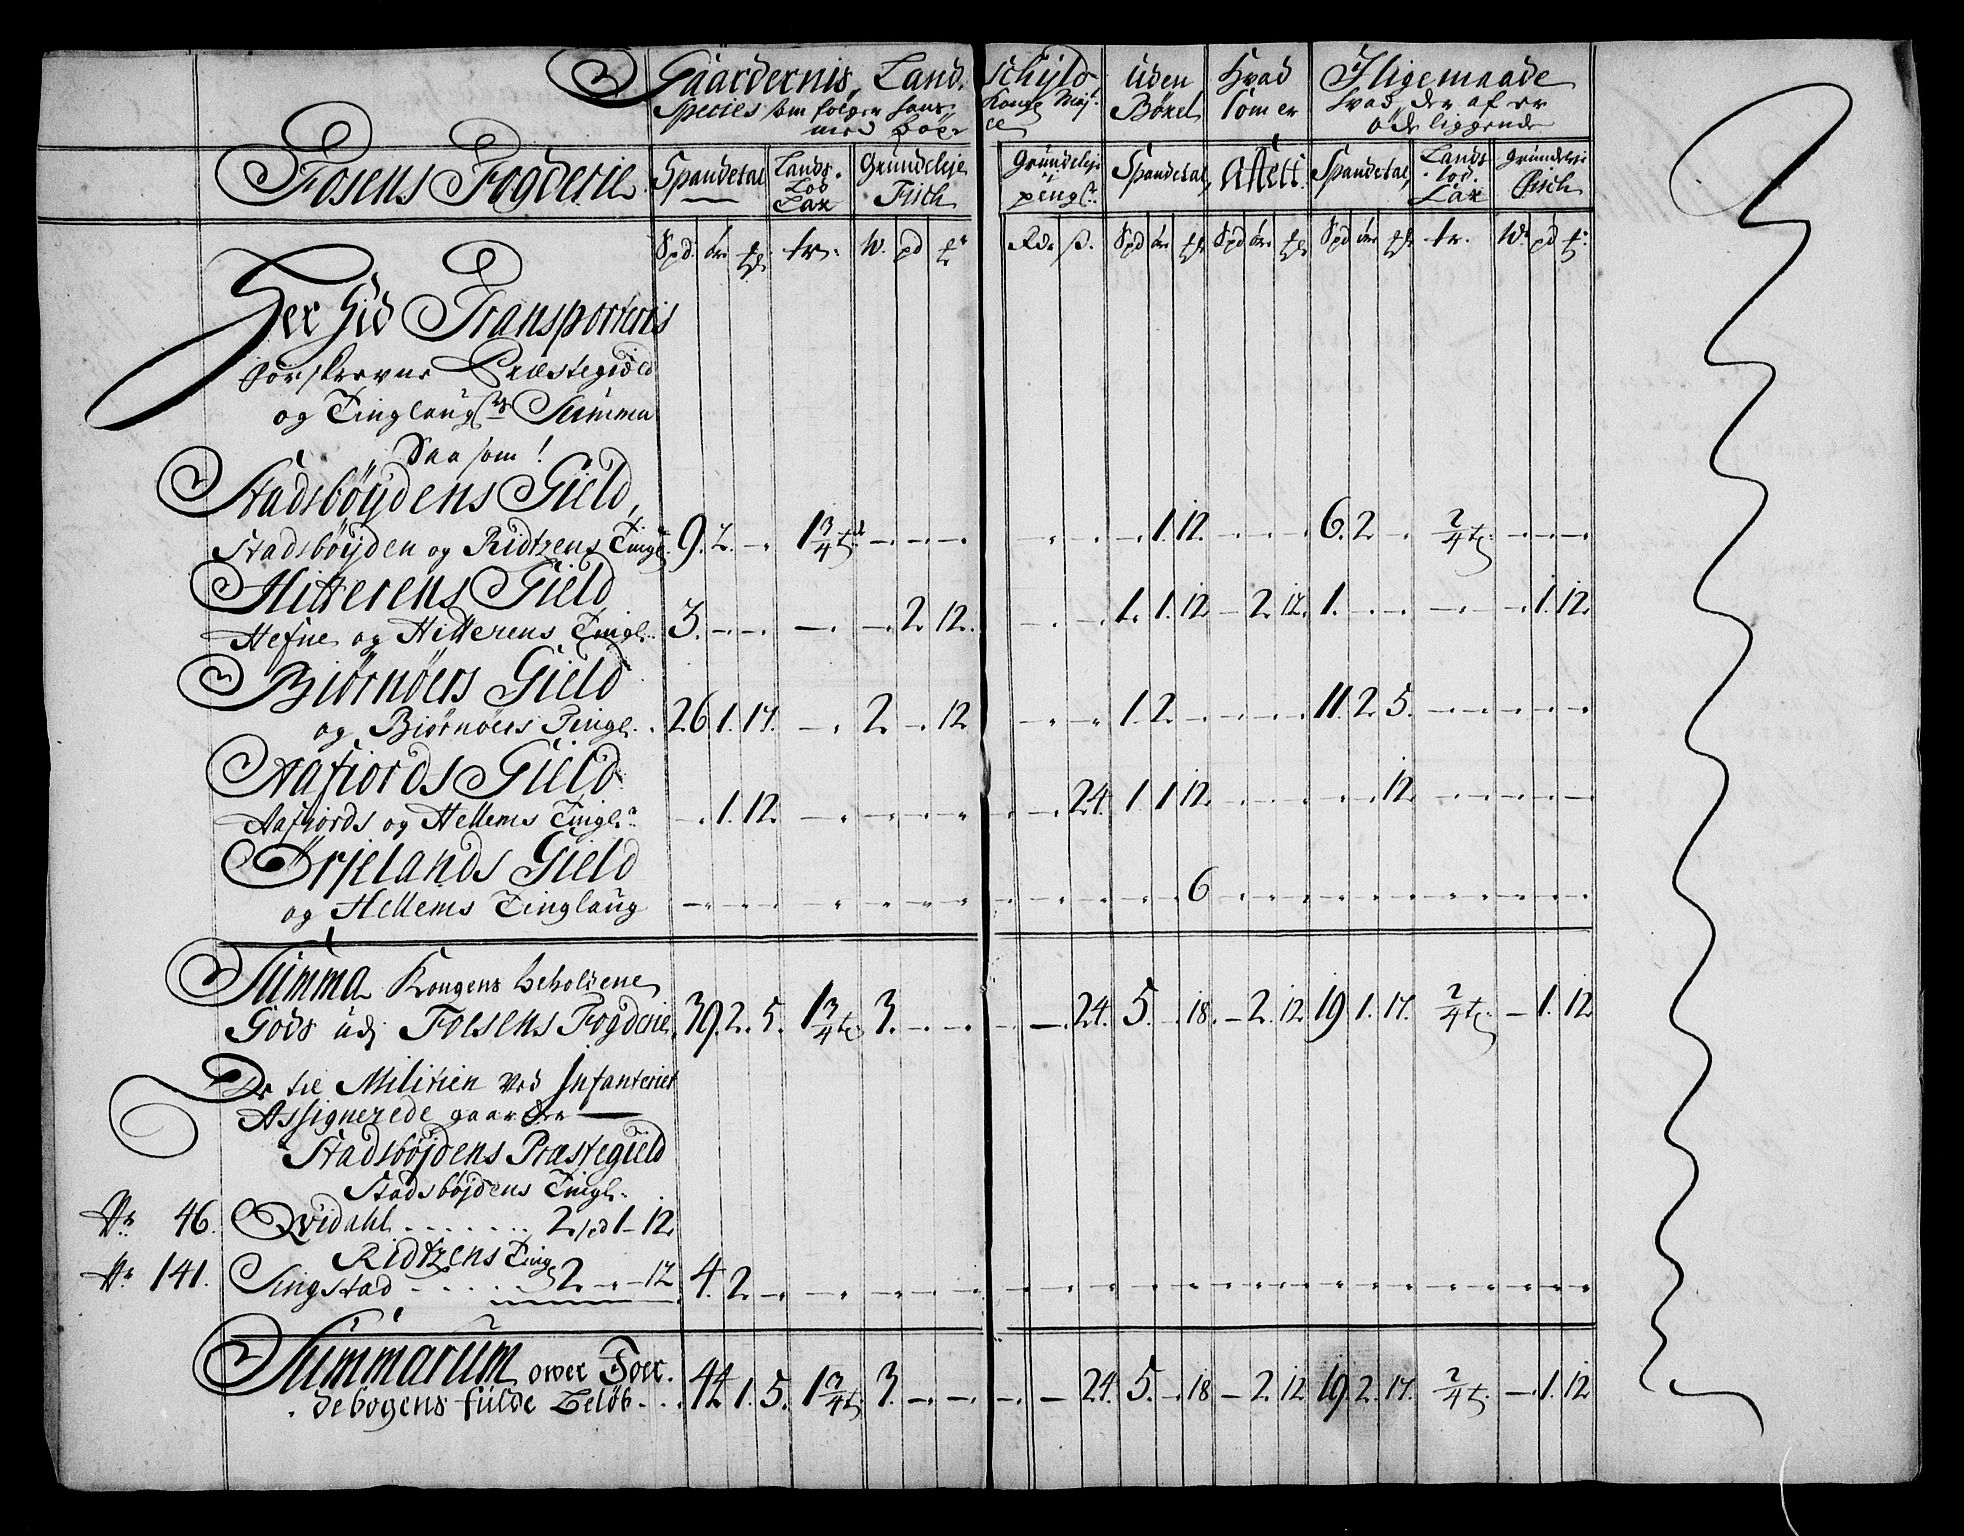 Gaardernis, Land-schÿld uden Hvad Iligemaade
Species som følger hans Kong Maj Böxel som er hvad der af er
med øde liggende
Fosens Fogderie Spandetal Lands Grundeleje Grundeleje Spandetal, Spandetal, Lands Grundeleje
Lax Fisch penge Lax Fisch
Spd. ør. tr. W. pd Rdr s. Spd ør Spd ør Spd ør tr. W. pd
Her hid Transporteris
forskrevne Præstegield
og Tinglaug Summa
Saa som!
Stadsböÿdens Gield,
Stadsböÿden og Ridtzens Tingl. 9. 2. - 1 3/4 - - - - - - 1. 12. - - - 6. 2 - 2/4 - - -
Hitterens Gield
Hefne og Hitterens Tingl. 3. - - - - 2. 12. - - 1. 1. 12 - 2. 12. 1. - - - - 1. 12
Biörnöers Gield
og Biørnöers Tingl. 26 1. 17. - 2. - 12 - - 1. 2. - - - - 11. 2 5. - - - -
Aafiords Gield
Aafiords og Hellems Tingl. - 1. 12. - - - - - 24. 1 1 12 - - - - - 12. - - - -
Örjelands Gield
og Hellems Tinglaug - - - - - - - - - - - 6 - - - - - - - - - -
Summa Kongens beholdene
Gods udj Foesens Fogderie 39. 2. 5. 1 3/4 3. - - - 24. 5. - 18. - 2. 12. 19 1. 17. 2/4 - 1. 12
De til Militien ved Infanteriet
Assignerede gaarder
Stadsböjdens Præstegield
Stadsböjdens Tingl.
Nr. 46. Qvidahl . . . . . . 2 spd 1 - 12
Ridtzens Ting
Nr. 141. Singstad . . . . . 2 - - 12 4. 2 - - - - - - - - - - - - - - - - - - - -
Summarum over Foer-
debogens fulde Beløb. 44 1. 5. 1 3/4 3. - - - - 24. 5. - 18 - 2. 12 19. 2. 17. 2/4 - 1. 12